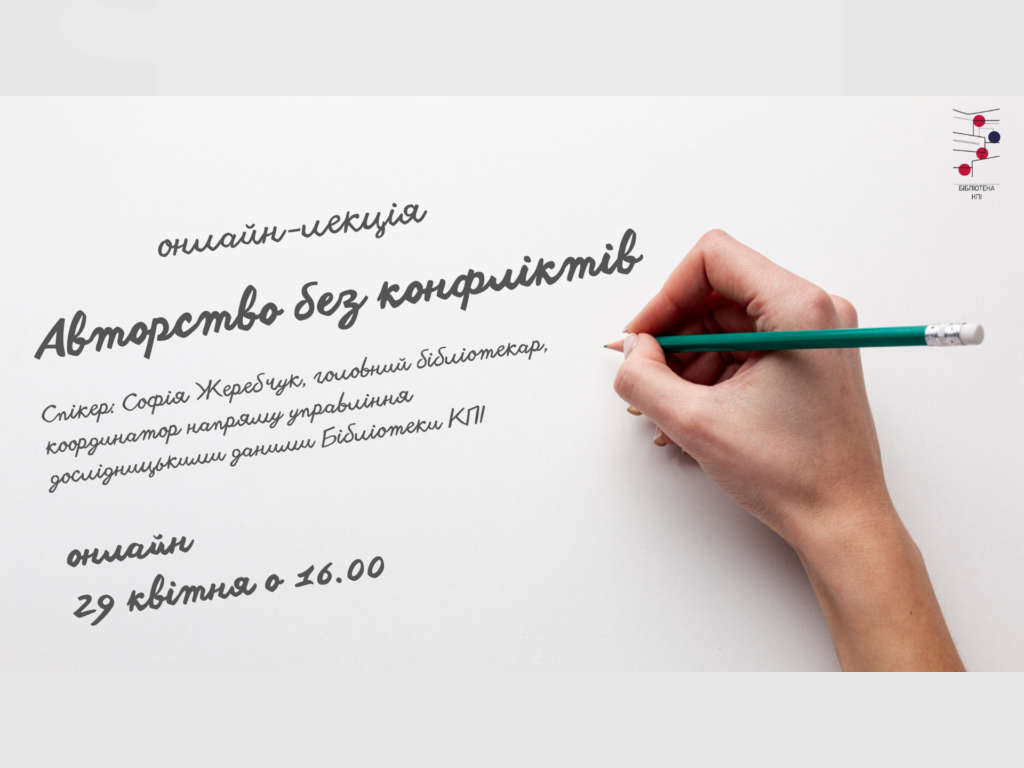 онлайн-лекція
Авторство без конфліктів
Спікер: Софія Жеребчук, головний бібліотекар,
координатор напряму управління
дослідницькими даними Бібліотеки КПІ
онлайн
29 квітня о 16.00
БІБЛІОТЕКА
КПІ